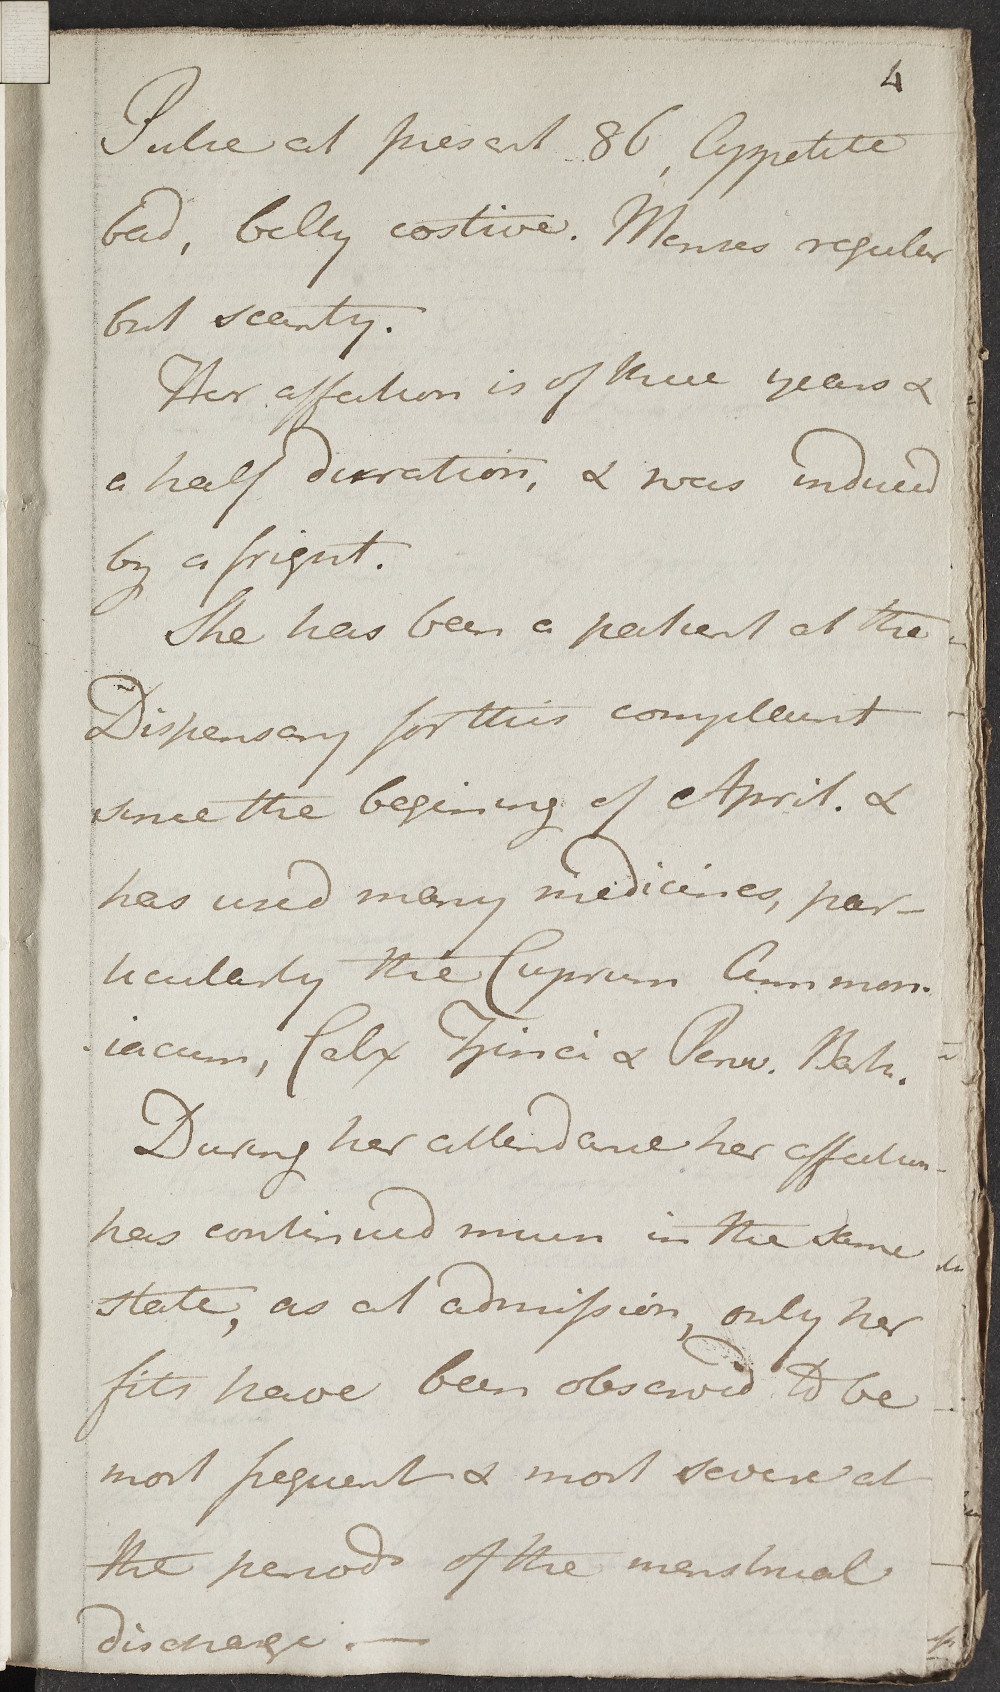 4
Pulse at present 86, Appetite
bad, belly costive. Menses regular
but scanty.
Her affection is of three years &
a half duration, & was induced
by a fright.
She has been a patient at the
Dispensary for this complaint
since the begining of April. &
has used many medicines, par-
ticularly the Cuprum Ammon-
iacum, Calx Zinci & Peruv. Bark.
During her attendance her affection
has continued much in the same
state, as at admission, only her
fits have been observed to be
most frequent & most severe at
the periods of the menstrual
discharge. —